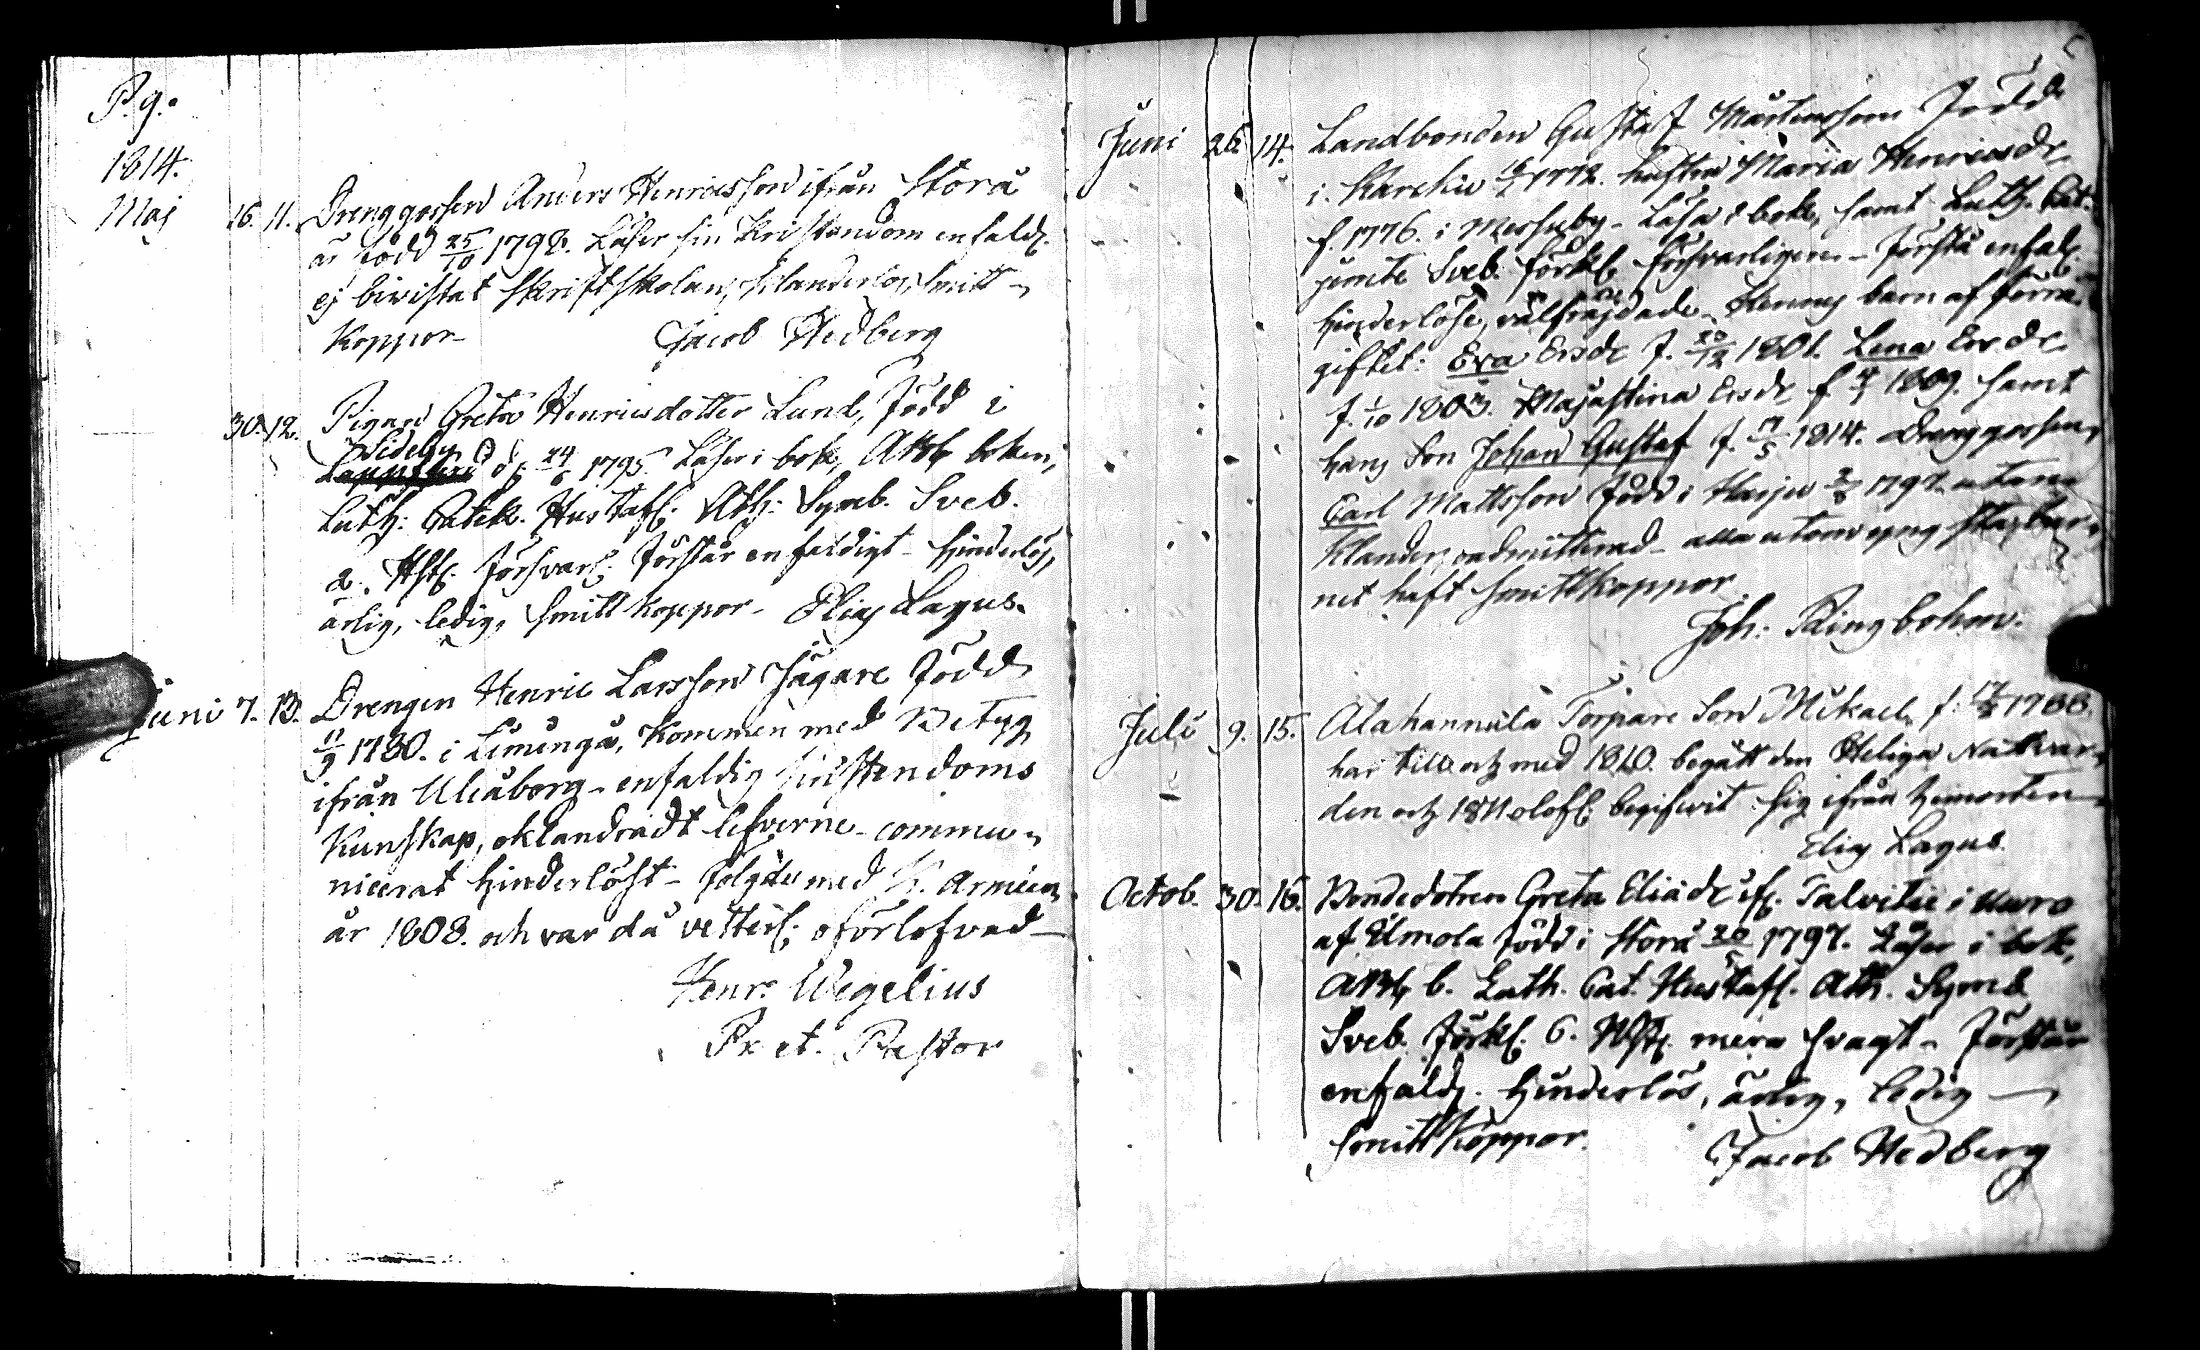 Pg.
1814.
Maj 16. 11. Drenggossen Anders Henricsson ifrån Storå
är född 25/10 1798. Läser sin Kristendom enfaldl.
ej bivistat Skriftskolan, klanderlös, smitt-
koppor Jacob Hedberg
30. 12. Pigan Greta Henricsdotter Lund, född i
Sideby
Lappfjärd d. 24/6 1795. Läser i bok, ABC boken,
Luth: Catek. Hustafl. Ath: Symb. Sveb.
2. Hst. försvarl. förstår enfaldigt - hinderlös,
ärlig, ledig, smittkoppor - Elias Lagus.
Juni 7. 13. Drengen Henric Larsson Jägare född
11/9 1780. i Limingå, kommen med Betyg
ifrån Uleåborg - enfaldig kristendoms
kunskap, oklandradt lefverne - commu-
nicerat hinderlöst - följde med K. Armeen
år 1808. och var då vetterl. oförlofvad -
Henr. Wegelius
Pr et. Pastor
Juni 26. 14. Landbonden Gustaf Mårtensson född
i Karchu 1772. hustru Maria Henricsdr
f. 1776. i Mersuby - Läsa i bok, samt Luth. Cat.
jemte Sveb. förkl. försvarligen - förstå enfal.
hinderlöse, välfräjdade - Hennes barn af förra
giftet: Eva Ersdr f. 20/12 1801. Lena Ersdr
f. 1/10 1803. Majastina Ersdr f. 4/1 1809. samt
hans Son Johan Gustaf f. 17/5 1814. Drenggossen
Carl Mattsson född i Harju 1797. utan
klander, admitterad - alla utom yng sta bar-
net haft smittkoppor.
Joh: Ringbohm.
Juli 9. 15. Alahannula Torpare Son Mikael, f. 1788.
har till och med 1810. begått den Heliga Nattvar-
den och 1811 olofl. begifvit sig ifrån hemorten
Elias Lagus.
Octob. 30. 16. Bondedotren Greta Eliædr ifr. Talvitie i Kuro
af Ilmola född i Storå 20/5 1797. Läser i bok,
ABC b. Luth. Cat. Hustafl. Ath. Symb.
Sveb. förkl. 6. Hst. mera svagt - förstår
enfaldl. hinderlös, ärlig, ledig -
smittkoppor. Jacob Hedberg